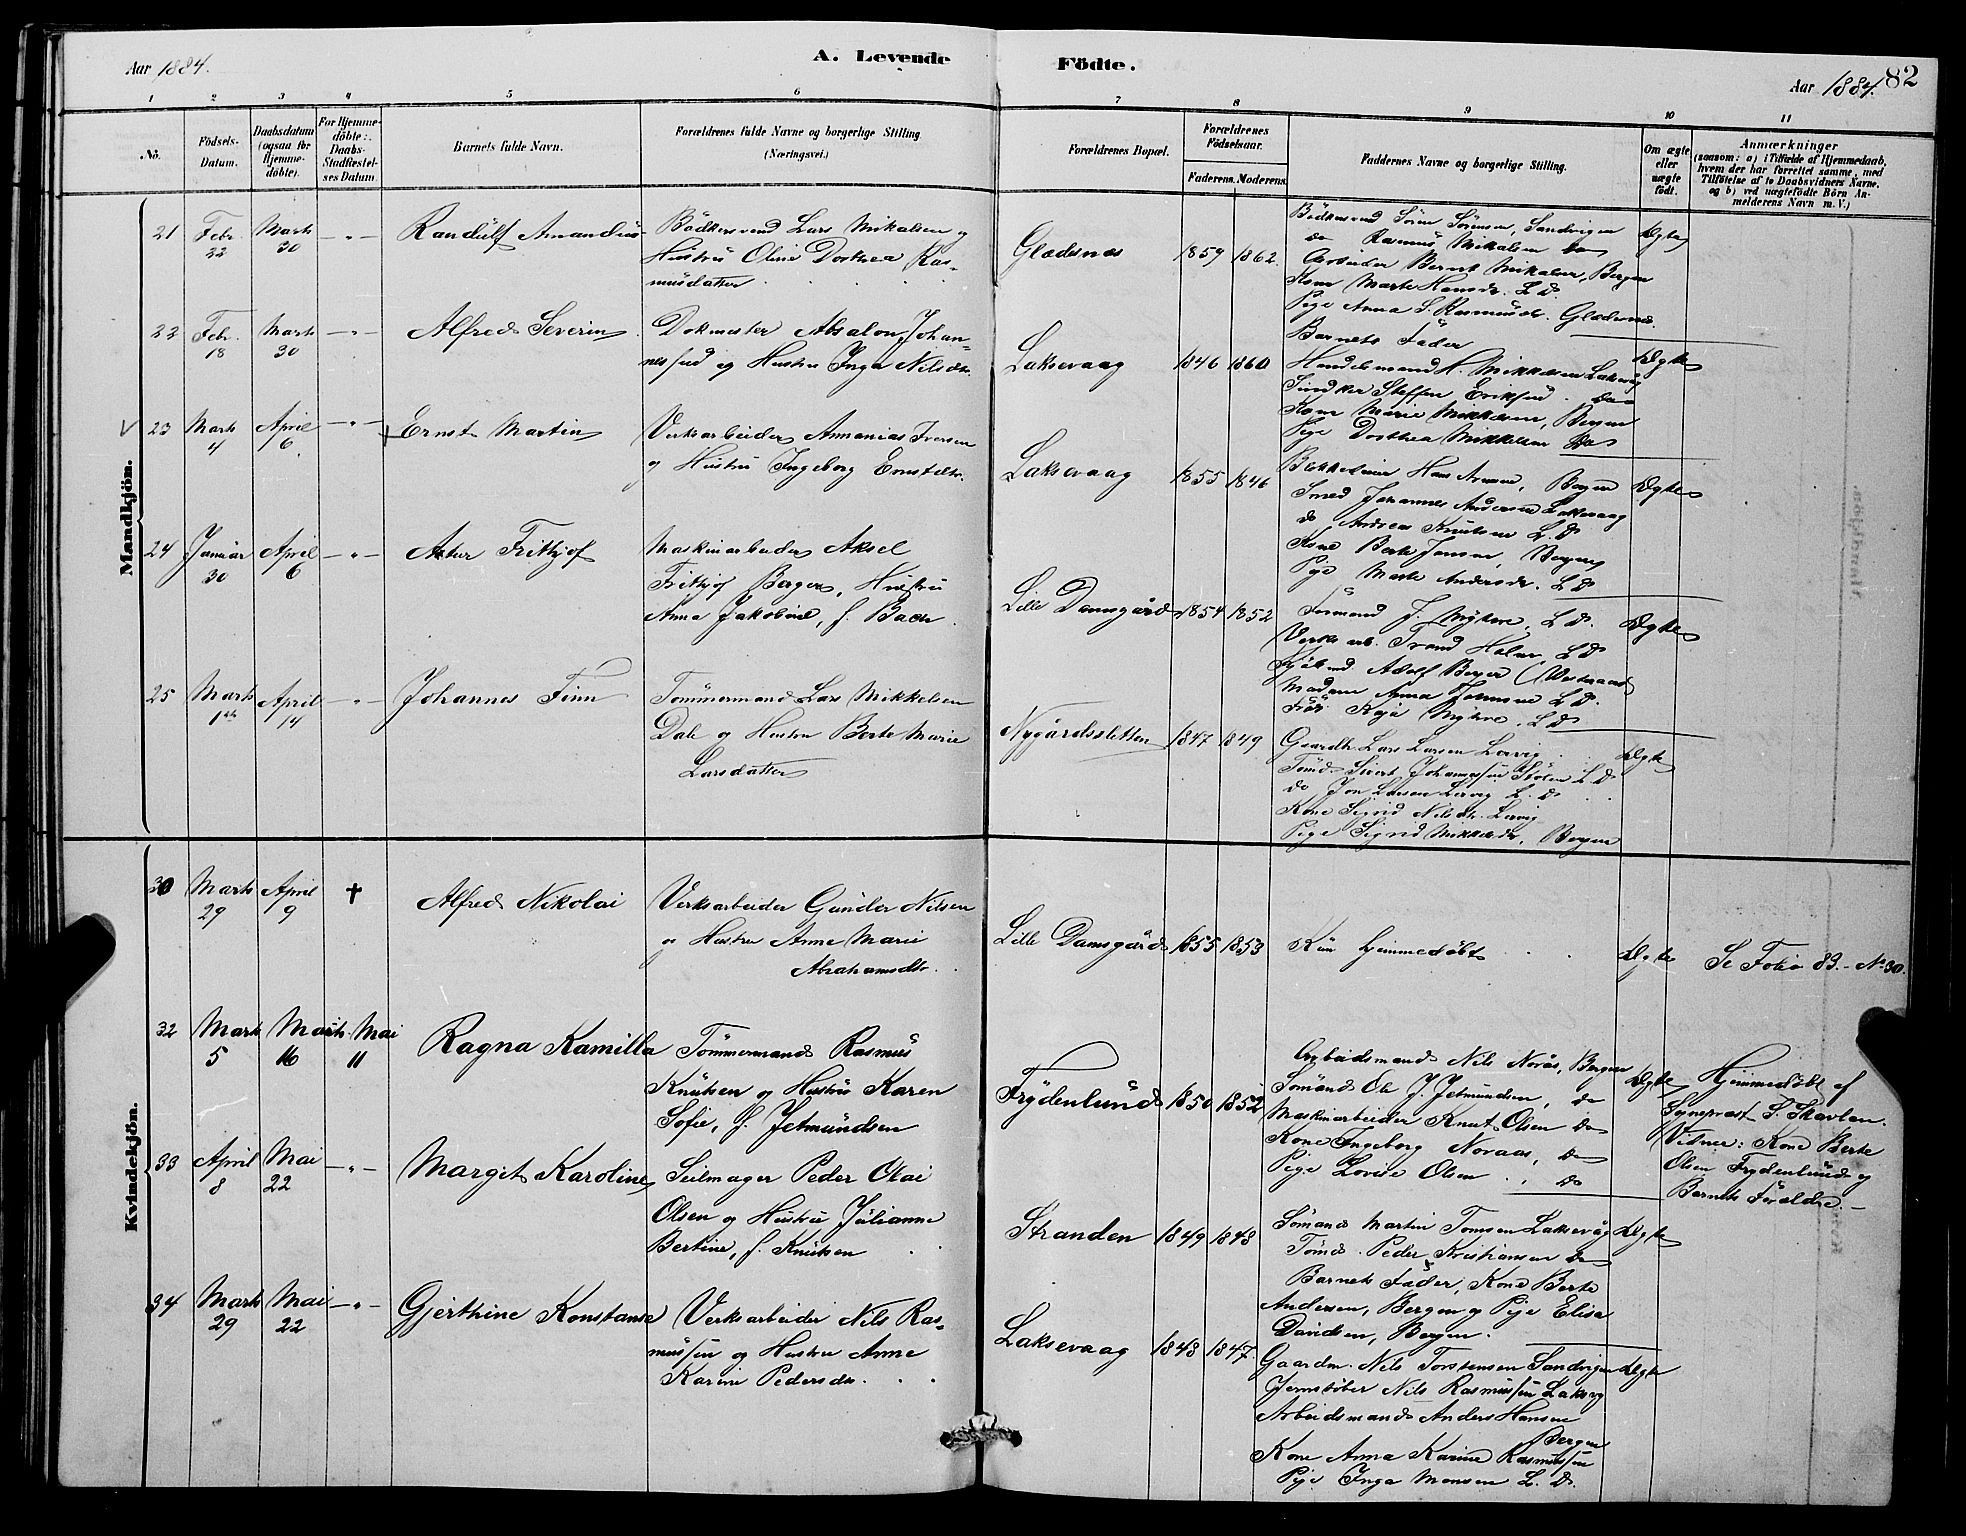 Aar 1884.
A. Levende Födte.
Aar 1884.
82
1
2
3
4
5
6
7
8
9
10
11
No.
Födsels-Datum.
Daabsdatum (ogsaa for Hjemme-döbte).
For Hjemme-döbte: Daabs-Stadfæstel-ses Datum.
Barnets fulde Navn.
Forældrenes fulde Navne og borgerlige Stilling.
(Næringsvei.)
Forældrenes Bopæl.
Forældrenes Födselsaar.
Faderens. Moderens.
Faddernes Navne og borgerlige Stilling.
Om ægte eller uægte födt.
Anmærkninger
(saasom: a) i Tilfælde af Hjemmedaab,
hvem der har forrettet samme, med
Tilföielse af to Daabsvidners Navne.
og b) ved uægtefödte Börn An-
melderens Navn m. V.)
Mandkjön.
21 Febr. 22 Marts 30 - " - Randulf Amandus
Bödkersvend Lars Mikalsen og
Hustru Oline Dorthea Ras-
musdatter
Gladesnæs 1859 1862
Bödkersvend Sören Sörensen, Sandvigen
do Rasmus Mikalsen do
Arbeider Bernt Mikalsen, Bergen
Kone Marte Hansdr. L. D.
Pige Anna S. Rasmusdr.
Ægte
22 Febr. 18 Marts 30 - " - Alfred Severin
Dokmester Absalon Johan-
nessen og Hustru Inga Nilsdr.
Laksevaag 1846 1860
Barnets Fader
Handelsmand H. Mikkelsen Laksevåg
Steffen Eriksen do
Kone Marie Mikkelsen, Bergen
Pige Dorthea Mikkelsen do
Ægte
23 Marts 4 April 6 - " - Ernst Martin
Verksarbeider Annanias Iversen
og Hustru Ingeborg Ernstdtr.
Laksevaag 1855 1846
Hans Bergen
Smed Johannes Andersen Laksevaag
do Andreas Knutsen L. D.
Kone Berte Jansen, Bergen
Pige Marte Andersdr. L. D.
Ægte
24 Januar 30 April 6 - " - Artur Frithjof
Maskinarbeider Aksel
Frithjof Berger, Hustru
Anna Jakobine, f. Bach
Lille Damsgård 1854 1852
Formand J. Myhre, L. D.
Verks arb. Trond L. D.
Adolf Berger
Madam Anna L. D.
Kaja Myhre, L. D.
Ægte
25 Marts April 14 - " - Johannes Finn
Tömmermand Lars Mikkelsen
Dale og Hustru Berte Marie
Larsdatter
Nygårdssletten 1847 1849
Gaardbr. Lars Larsen Lervig
Tömd. Sivert Johannessen Stölen L. D.
do Jon Larsen Lervig L. D.
Kone Sigrid Nilsdr. Lervig
Pige Sigrid Mikkelsdr. Bergen
Ægte
Kvindekjön.
30 Marts 29 April 9 † Alfred Nikolai
Verksarbeider Gunder Nilsen
og Hustru Anne Marie
Abrahamsdtr.
Lille Damsgård 1855 1853
Kun hjemmedöbt
Ægte
Se Folio 83. - No 30.
32 Marts 5 Marts 16 Mai 11 Ragna Kamilla
Tömmermand Rasmus
Knutsen og Hustru Karen
Sofie, f. Jetmundsen
Frydenlund 1850 1852
Arbeidsmand Nils Norås, Bergen
Sömand Ole J. Jetmundsen, do
Maskinarbeider Knut Olsen do
Kone Ingeborg Noraas, do
Pige Lovise Olsen do
Ægte
Hjemmedöbt af
Sogneprest S. Skavlan.
Vidner: Kone Berte
Olsen Frydenlund og
Barnets Forældre. -
33 April 8 Mai 22 - " - Margit Karoline
Seilmager Peder Olai
Olsen og Hustru Julianne
Bertine, f. Knutsen
Stranden 1849 1848
Sömand Martin Tomsen Laksevåg
Tömd. Peder Kristiansen do
Barnets Fader, Kone Berte
Andersen, Bergen og Pige Elise
Davidsen, Bergen.
Ægte
34 Marts 29 Mai 22 - " - Gjerthine Konstanse
Verksarbeider Nils Ras-
mussen og Hustru Anne
Karine Pedersdr.
Laksevaag 1848 1847
Gaardm. Nils Torstensen Sandvigen
Jernstöber Nils Rasmussen Laksvg
Arbeidsmand Anders Hansen
Bergen
Kone Anna Karine Rasmussen
Pige Inga Monsen L. D.
Ægte